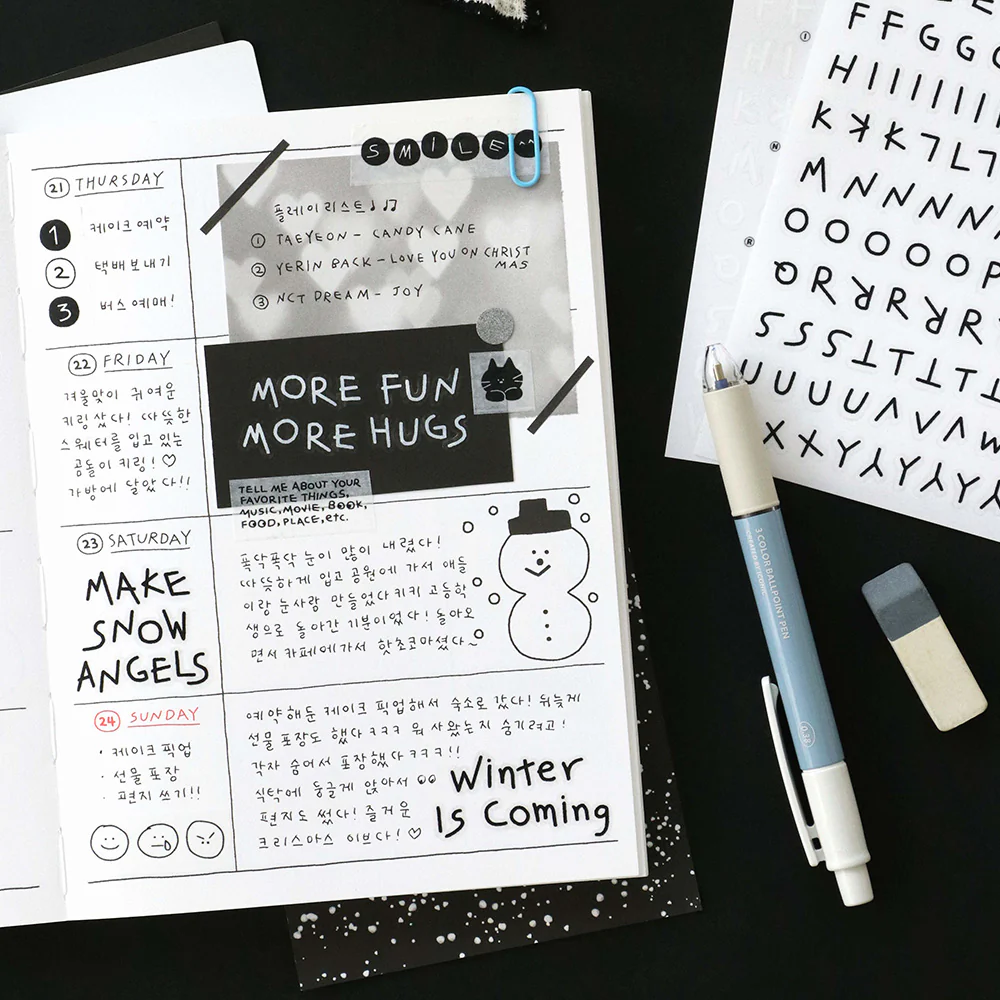 SMILE ^^
21 THURSDAY
1 케이크 예약
2 택배 보내기
3 버스 예매!
플레이리스트♩♫
① TAEYEON - CANDY CANE
② YERIN BACK - LOVE YOU ON CHRIST
MAS
③ NCT DREAM - JOY
22 FRIDAY
겨울맞이 귀여운
키링 샀다! 따뜻한
스웨터를 입고 있는
곰돌이 키링! ♡
가방에 달았다!!
MORE FUN
MORE HUGS
TELL ME ABOUT YOUR
FAVORITE THINGS,
MUSIC, MOVIE, BOOK,
FOOD, PLACE, etc.
23 SATURDAY
MAKE
SNOW
ANGELS
폭닥폭닥 눈이 많이 내렸다!
따뜻하게 입고 공원에 가서 애들
이랑 눈사람 만들었다키키 고등학
생으로 돌아간 기분이었다! 돌아오
면서 카페에가서 핫초코마셨다~
24 SUNDAY
· 케이크 픽업
· 선물 포장
· 편지 쓰기!!
예약해둔 케이크 픽업해서 숙소로 갔다! 뒤늦게
선물 포장도 했다ㅋㅋㅋ 뭐 사왔는지 숨기려고!
각자 숨어서 포장했다ㅋㅋㅋ!!
식탁에 둥글게 앉아서
편지도 썼다! 즐거운
크리스마스 이브다! ♡
Winter
Is Coming
F F G G
H I I I I I I I
K K K L L
M N N N N
O O O O O P
Q R R R R
S S S S T T T
U U U U V V V W
X X Y Y Y Y
3 COLOR BALLPOINT PEN
CREATED BY ICONIC
0.38